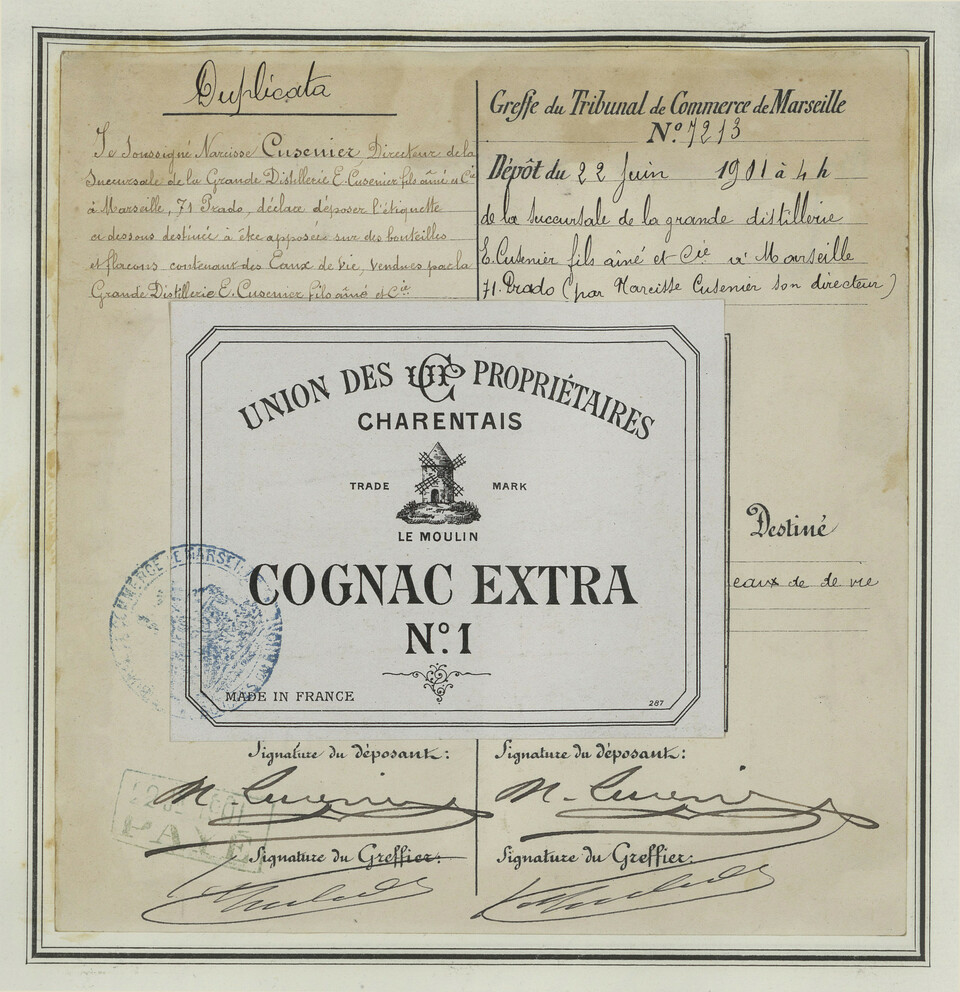 Duplicata
Je Soussigné Narcisse Cusenier, Directeur de la
Succursale de la Grande Distillerie E. Cusenier fils aîné et Cie
à Marseille, 71 Prado, déclare déposer l'étiquette
ci dessous destinée à être apposée sur des bouteilles
et flacons contenant des Eaux de Vie, vendues par la
Grande Distillerie E. Cusenier fils aîné et Cie
Greffe du Tribunal de Commerce de Marseille
No. 7213
Dépôt du 22 Juin 1901 à 4 h
de la succursale de la grande distillerie
E. Cusenier fils aîné et Cie à Marseille
71. Prado (par Narcisse Cusenier son directeur)
UNION DES UCP PROPRIÉTAIRES
CHARENTAIS
TRADE MARK
LE MOULIN
COGNAC EXTRA
No. 1
MADE IN FRANCE
287
Destiné
eaux de de vie
COMMERCE DE MARSEILLE
Signature du déposant:
Signature du déposant:
M. Cusenier
M. Cusenier
PAYÉ
Signature du Greffier:
Signature du Greffier: